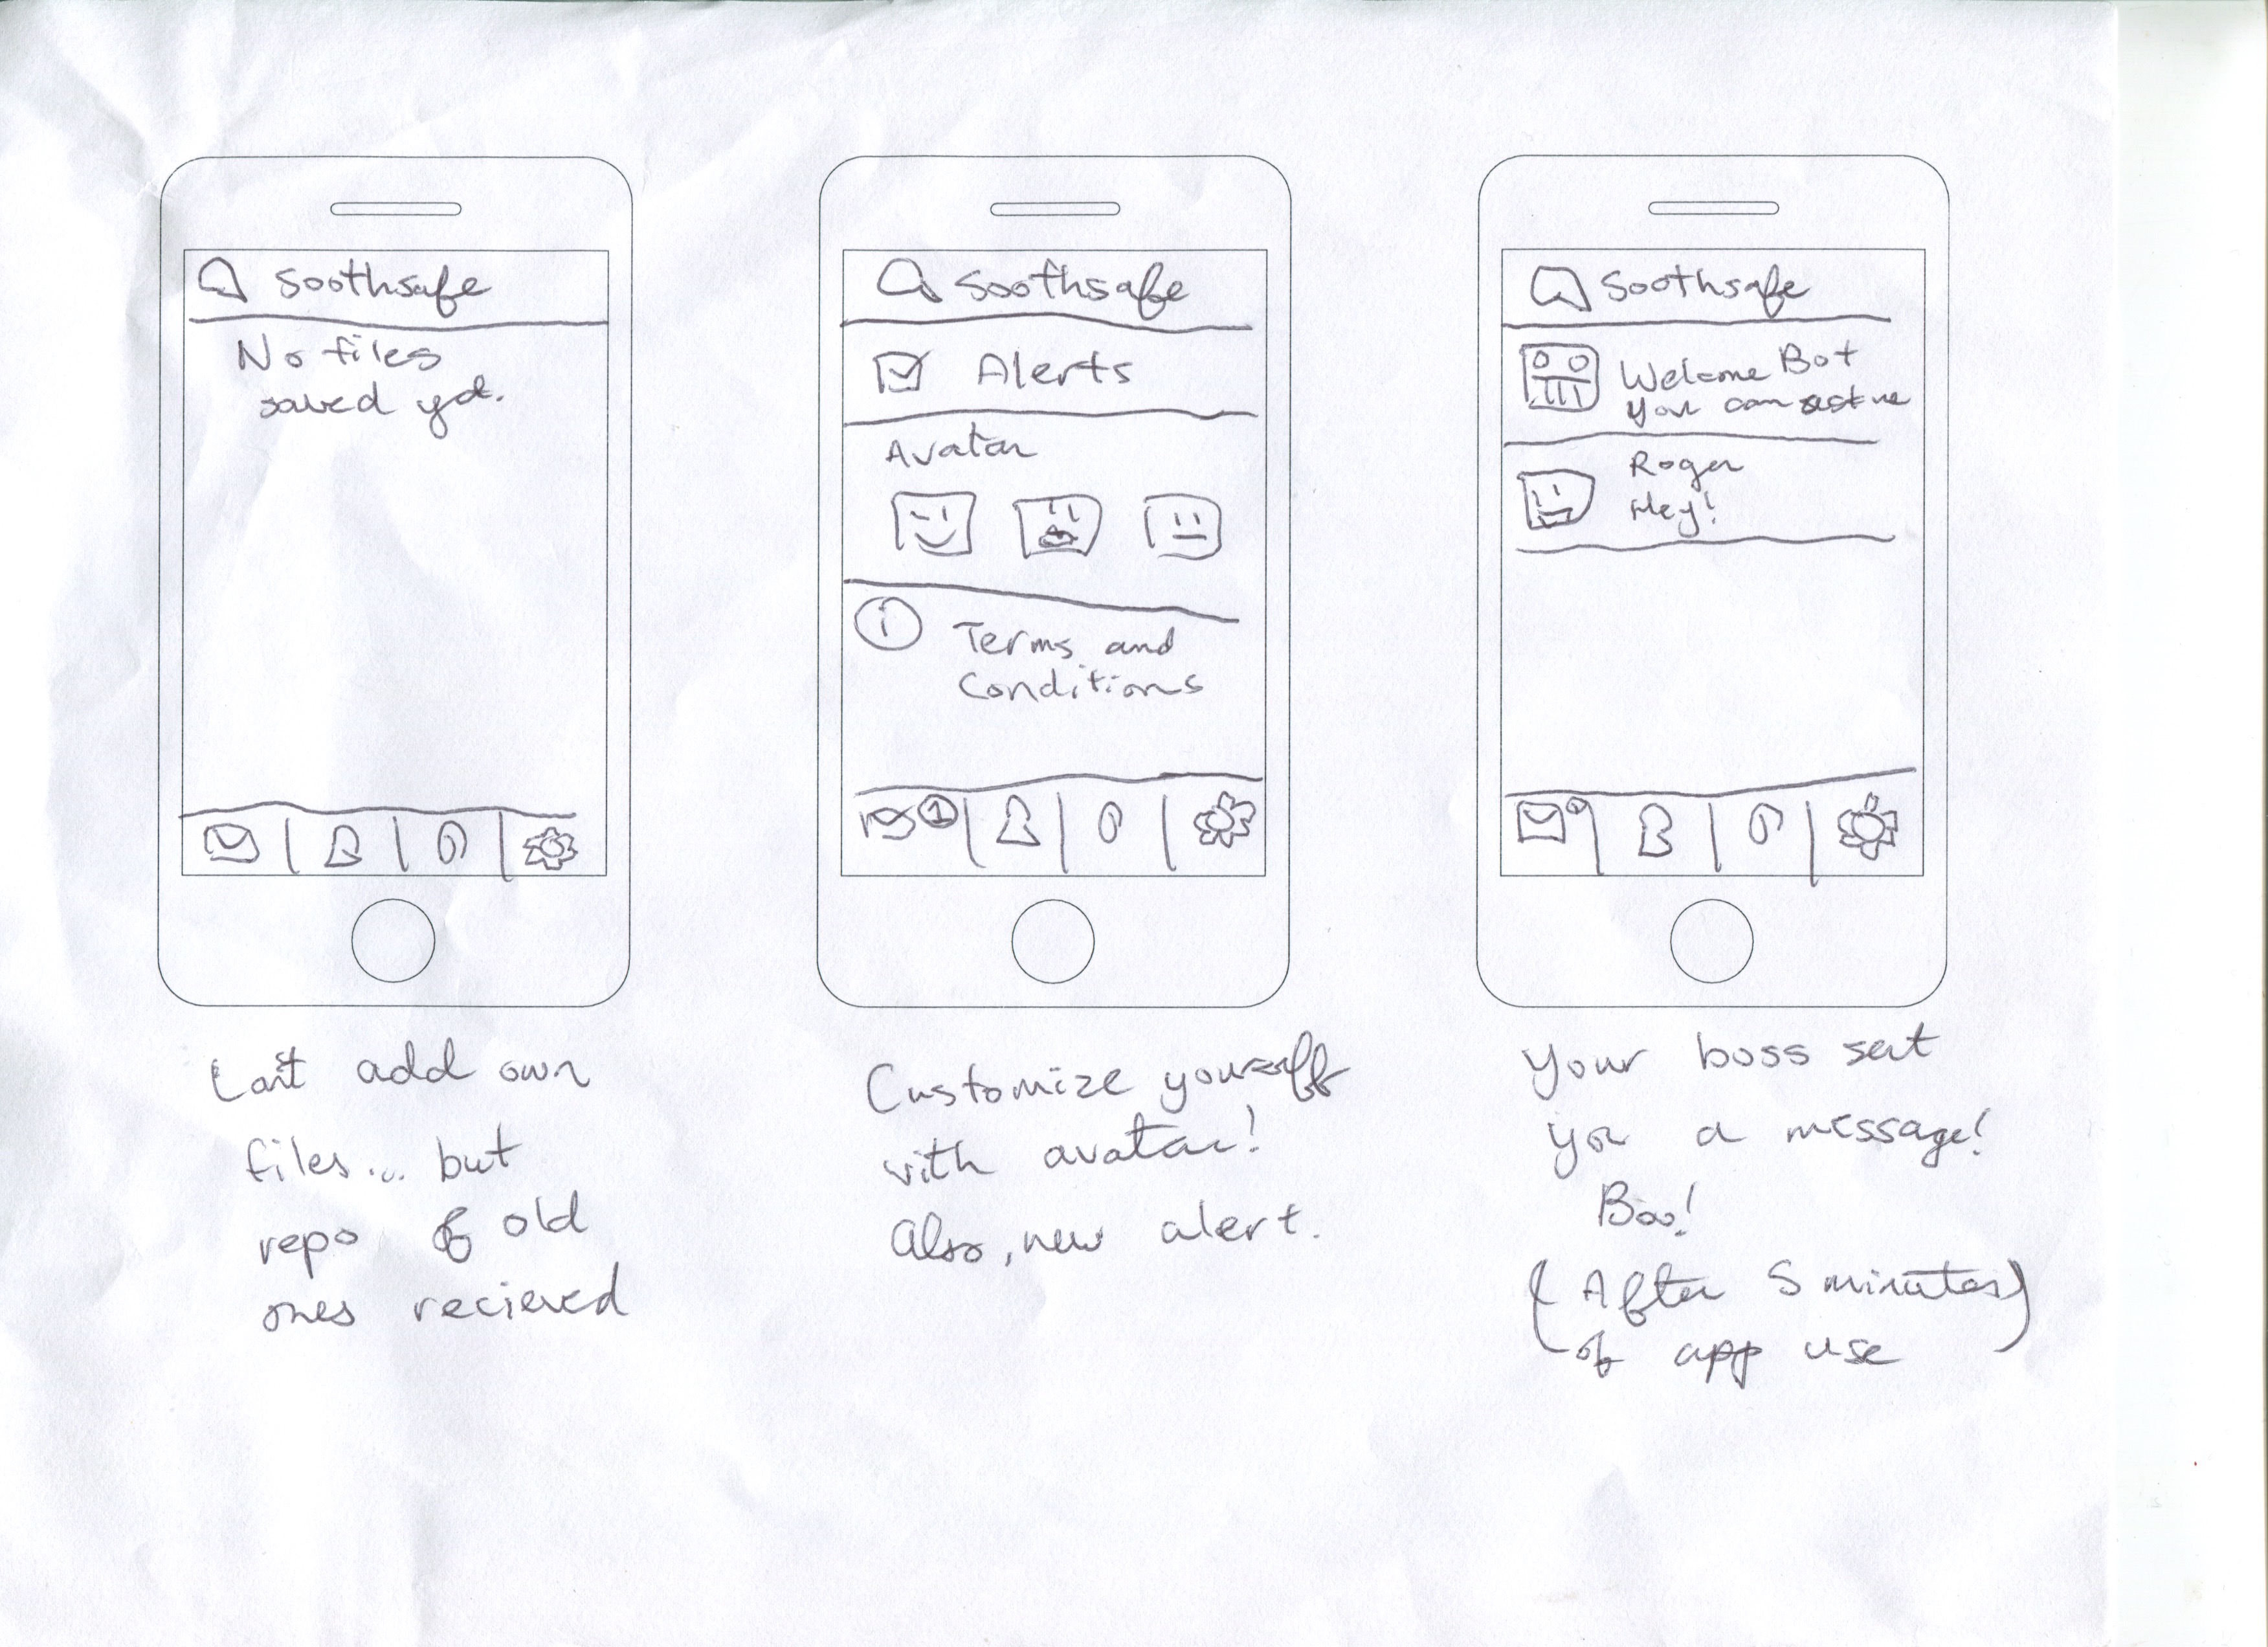 Soothsafe
No files
saved yet.
Can't add own
files... but
repo of old
ones recieved
Soothsafe
Alerts
Avatar
i Terms and
Conditions
1
Customize yourself
with avatar!
Also, new alert.
Soothsafe
Welcome Bot
you can
Roger
Hey!
Your boss sent
you a message!
Boo!
(After 5 minutes)
of app use